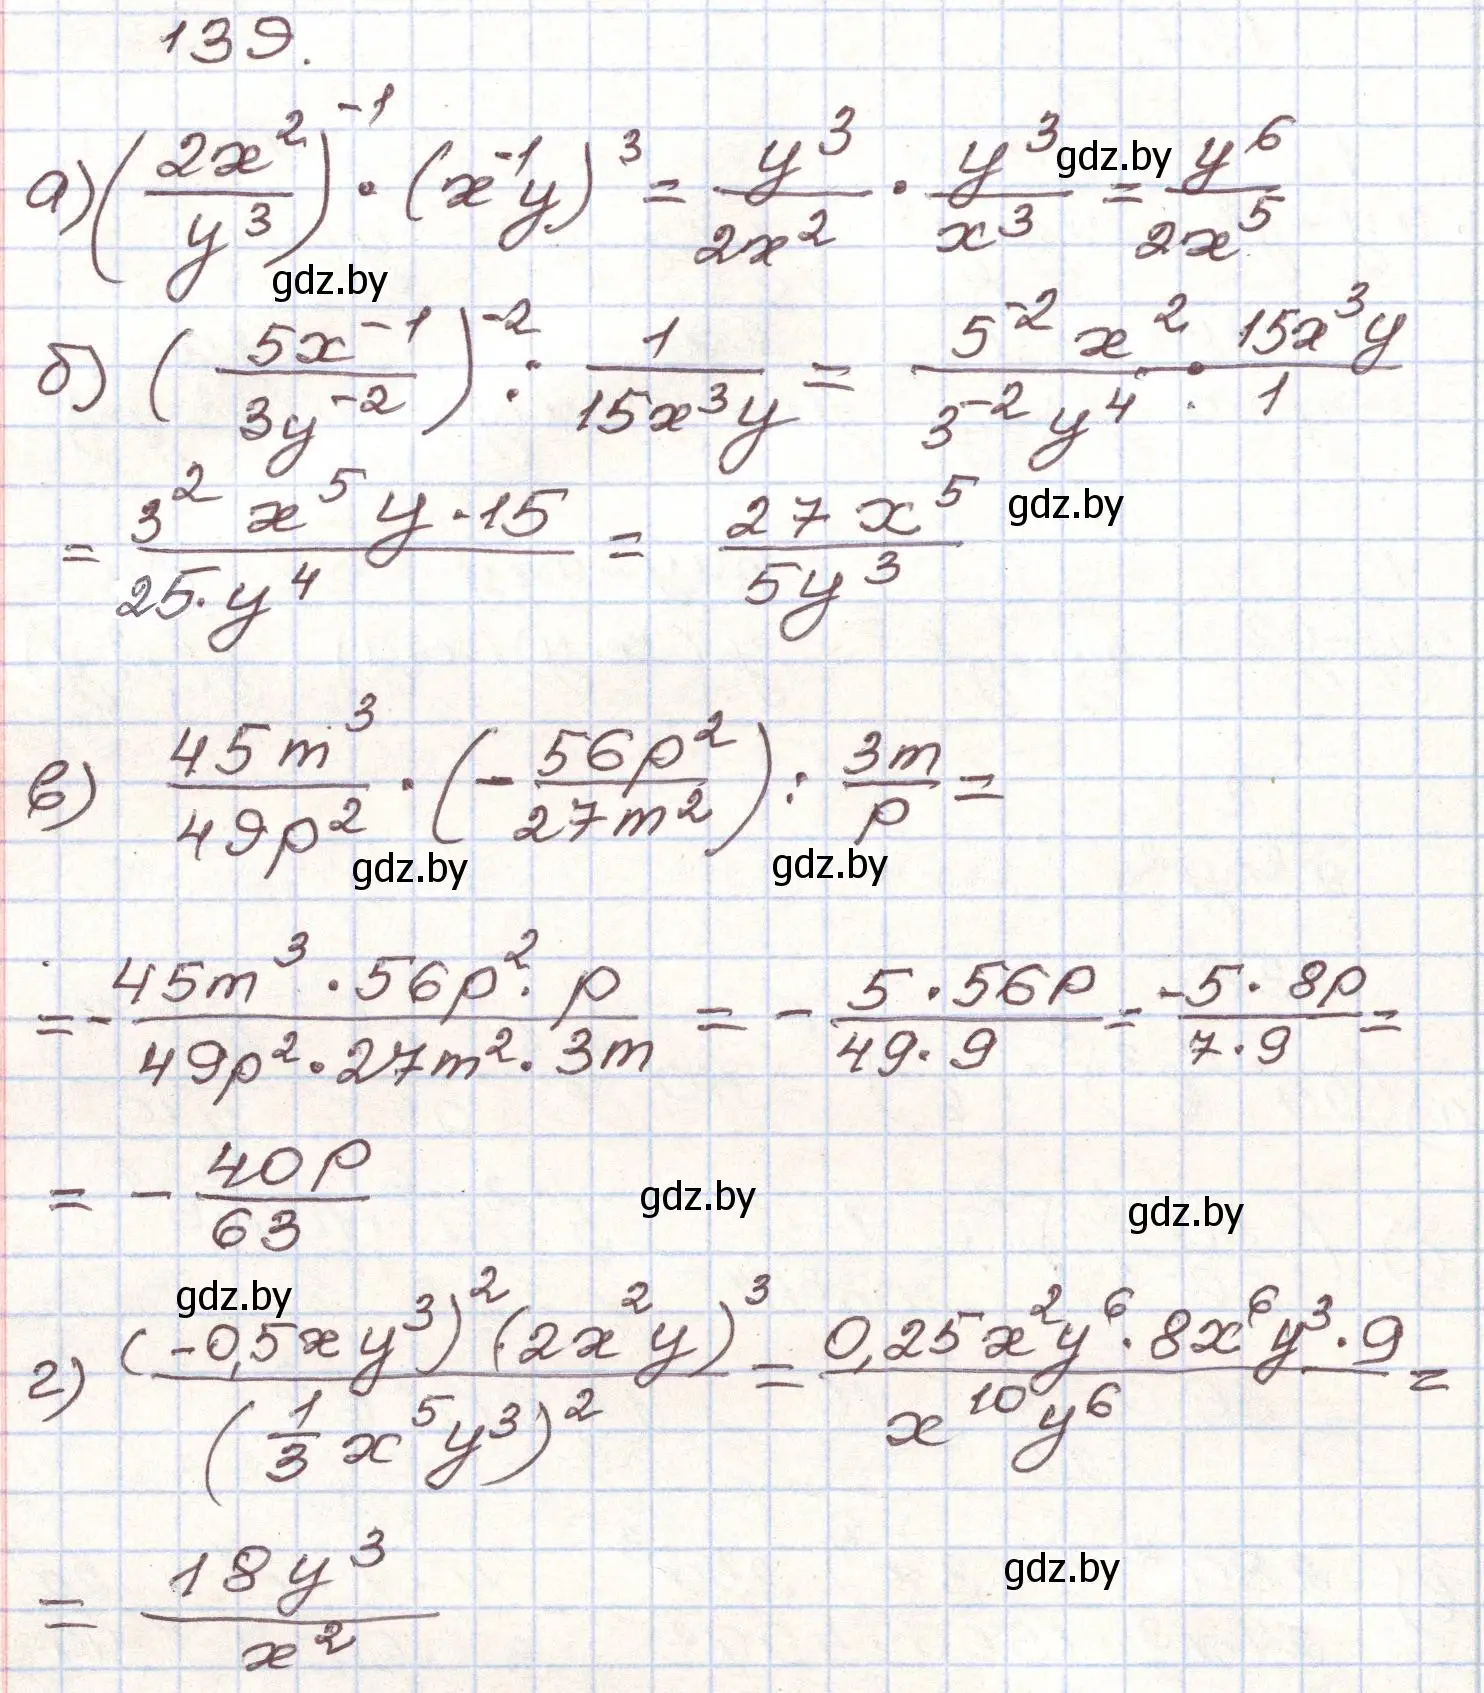 139.
а) (2x²/y³)⁻¹ · (x⁻¹y)³ = y³/2x² · y³/x³ = y⁶/2x⁵
gdz.by
gdz.by
б) (5x⁻¹/3y⁻²)⁻² : 1/15x³y = 5⁻²x²/3⁻²y⁴ · 15x³y/1
= 3² x⁵ y · 15/25 · y⁴ = 27x⁵/5y³
gdz.by
в) 45m³/49p² · (- 56p²/27m²) : 3m/p =
gdz.by
gdz.by
= - 45m³ · 56p² · p/49p² · 27m² · 3m = - 5 · 56p/49 · 9 = -5 · 8p/7 · 9 =
= - 40p/63
gdz.by
gdz.by
gdz.by
г) (-0,5xy³)² · (2x²y)³/(1/3 x⁵y³)² = 0,25x²y⁶ · 8x⁶y³ · 9/x¹⁰y⁶ =
= 18y³/x²
gdz.by